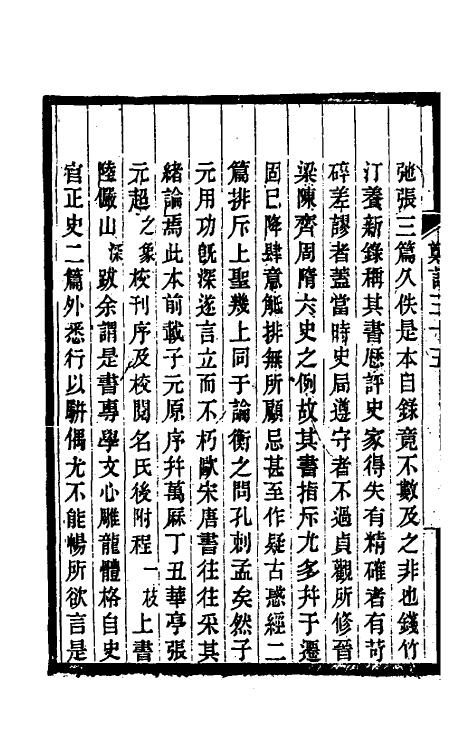 弛張三篇久佚是本自錄竟不數及之非也錢竹
汀養新錄稱其書歴評史家得失有精確者有苛
碎差謬者蓋當時史局遵守者不過貞觀所修晉
梁陳齊周隋六史之例故其書指斥尤多幷于遷
固巳降肆意觝排無所顧忌甚至作疑古惑經二
篇排斥上聖幾上同于論衡之問孔刺孟矣然子
元用功旣深遂言立而不朽歐宋唐書往往采其
緒論焉此本前載子元原序幷萬厤丁丑華亭張
元超之象校刊序及校閱名氏後附程一枝上書
陸儼山深跋余謂是書專學文心雕龍體格自史
官正史二篇外悉行以駢偶尤不能暢所欲言是
鄭記三十五